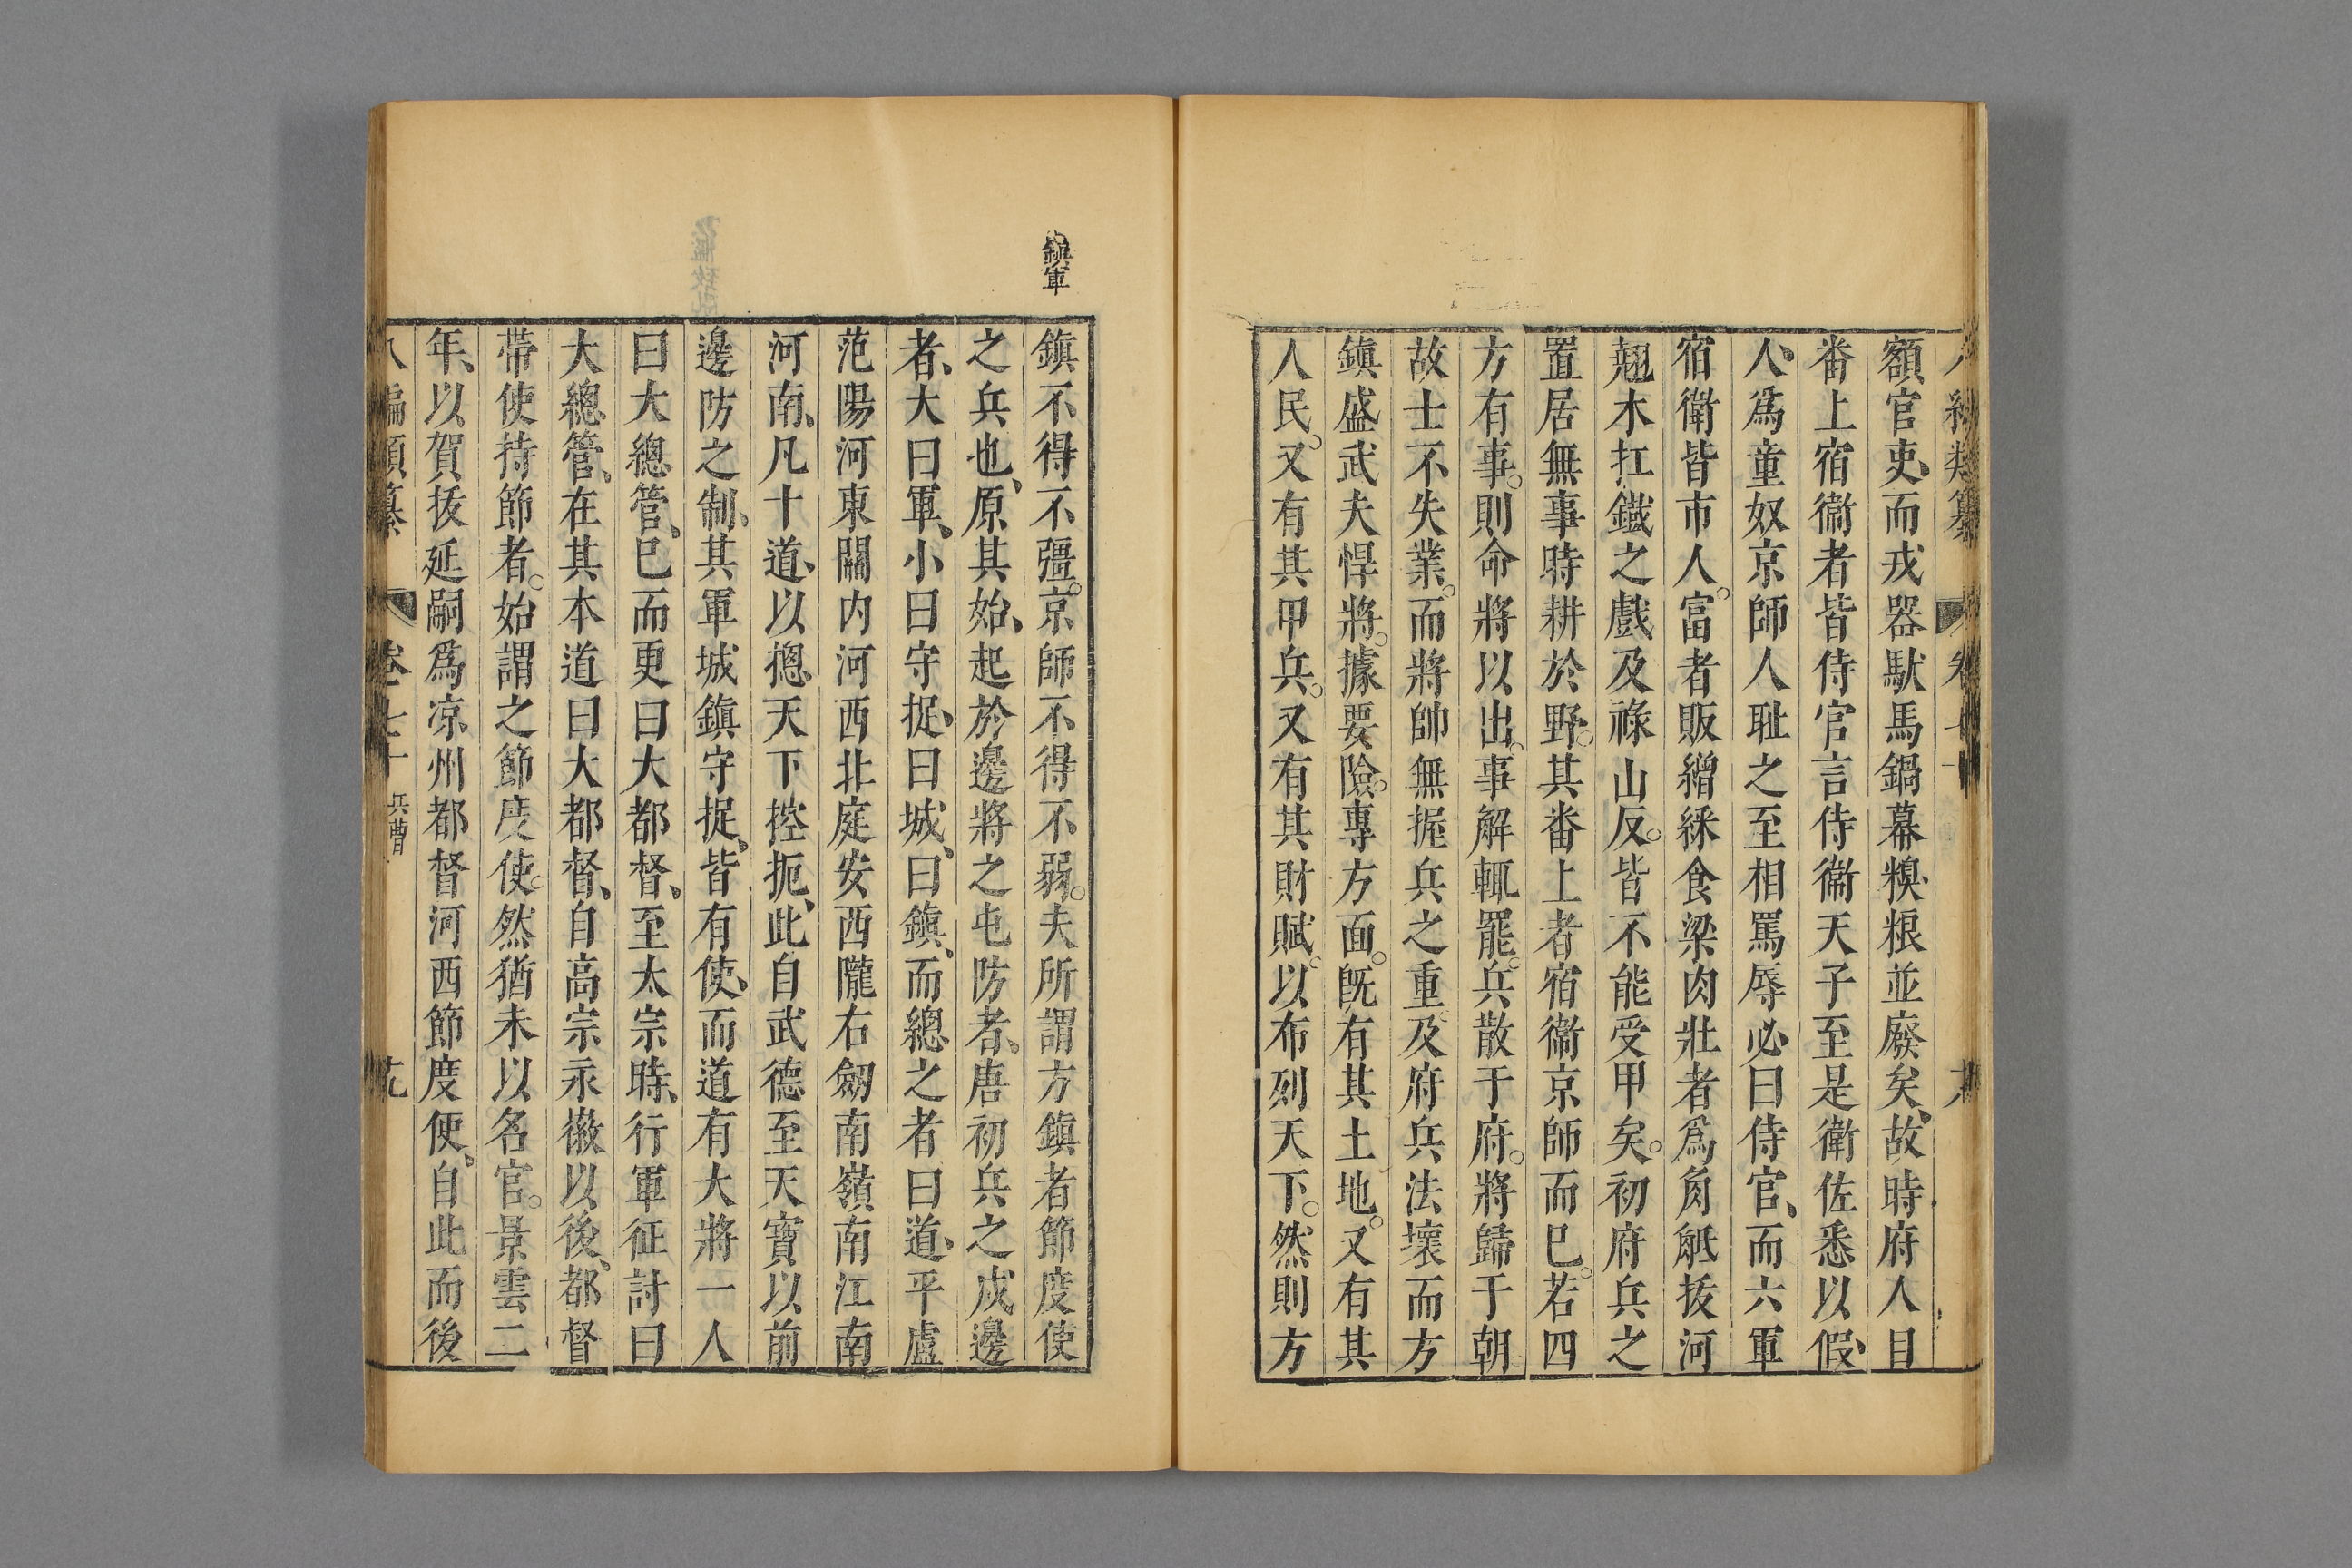 額官吏、而戎器馱馬鍋幕糗粮並廢矣、故時府人目
番上宿衞者皆侍官言侍衞天子至是衛佐悉以假
人、爲童奴京師人耻之至相罵辱必曰侍官、而六軍
宿衛皆市人。富者販繒綵食梁肉壯者爲角觝拔河
翹木扛鐵之戲及祿山反。皆不能受甲矣。初府兵之
置居無事時耕於野。其番上者宿衞京師而巳。若四
方有事。則命將以出。事解輒罷。兵散于府。將歸于朝
故士不失業。而將帥無握兵之重及府兵法壞而方
鎮盛武夫悍將。據要險。專方面。旣有其土地。又有其
人民。又有其甲兵。又有其財賦。以布列天下。然則方
鎮軍
鎮不得不彊。京師不得不弱。夫所謂方鎮者節度使
之兵也、原其始、起於邊將之屯防者。唐初兵之戍邊
者、大曰軍、小曰守捉、曰城、曰鎮、而總之者曰道、平盧
范陽河東關内河西北庭安西隴右劒南嶺南江南
河南、凡十道、以摠天下控扼、此自武德至天寶以前
邊防之制、其軍城鎮守捉、皆有使、而道有大將一人
曰大總管、巳而更曰大都督、至太宗時、行軍征討曰
大總管、在其本道曰大都督、自高宗永徽以後、都督
帶使持節者。始謂之節度使。然猶未以名官。景雲二
年、以賀拔延嗣爲凉州都督河西節度使、自此而後
八編類纂 卷七十 兵曹 十九